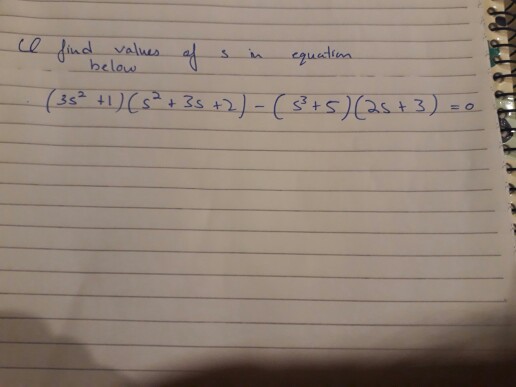 find values of s in equation
below
(3s² + 1)(s² + 3s + 2) - (s³ + 5)(2s + 3) = 0